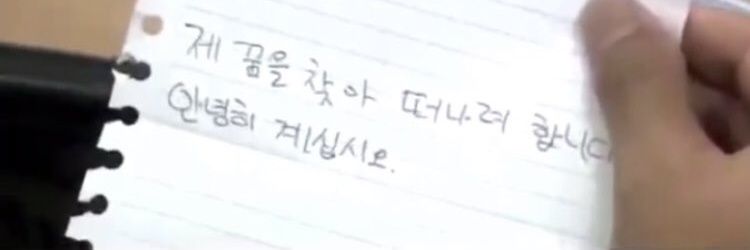 제 꿈을 찾아 떠나려 합니다
안녕히 계십시오.